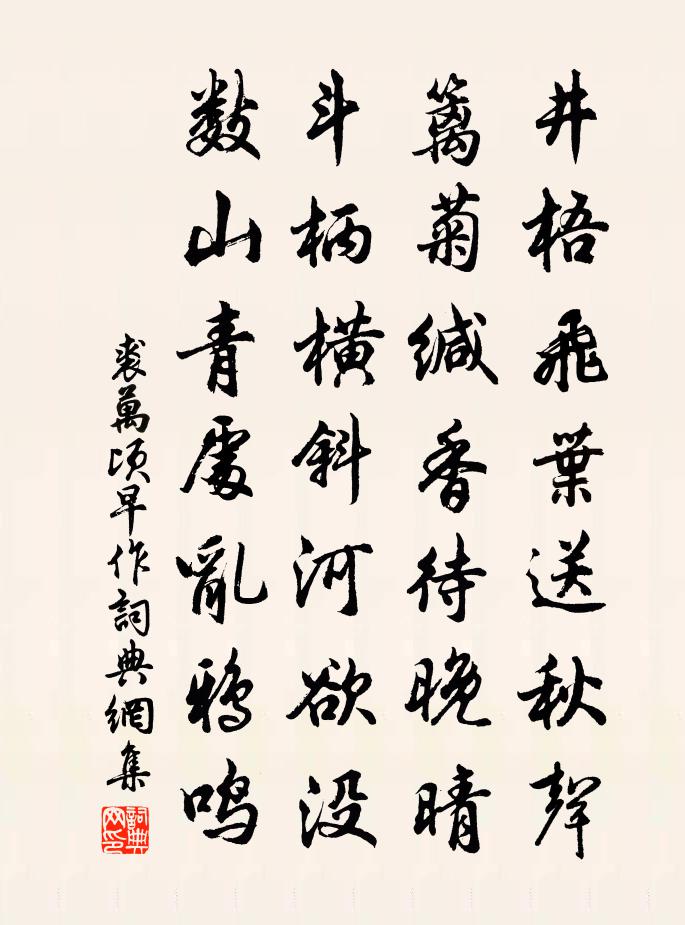 井梧飛葉送秋聲
籬菊緘香待晚晴
斗柄橫斜河欲沒
数山青處亂鴉鳴
裘萬頃早作詞典網集
詞典网印